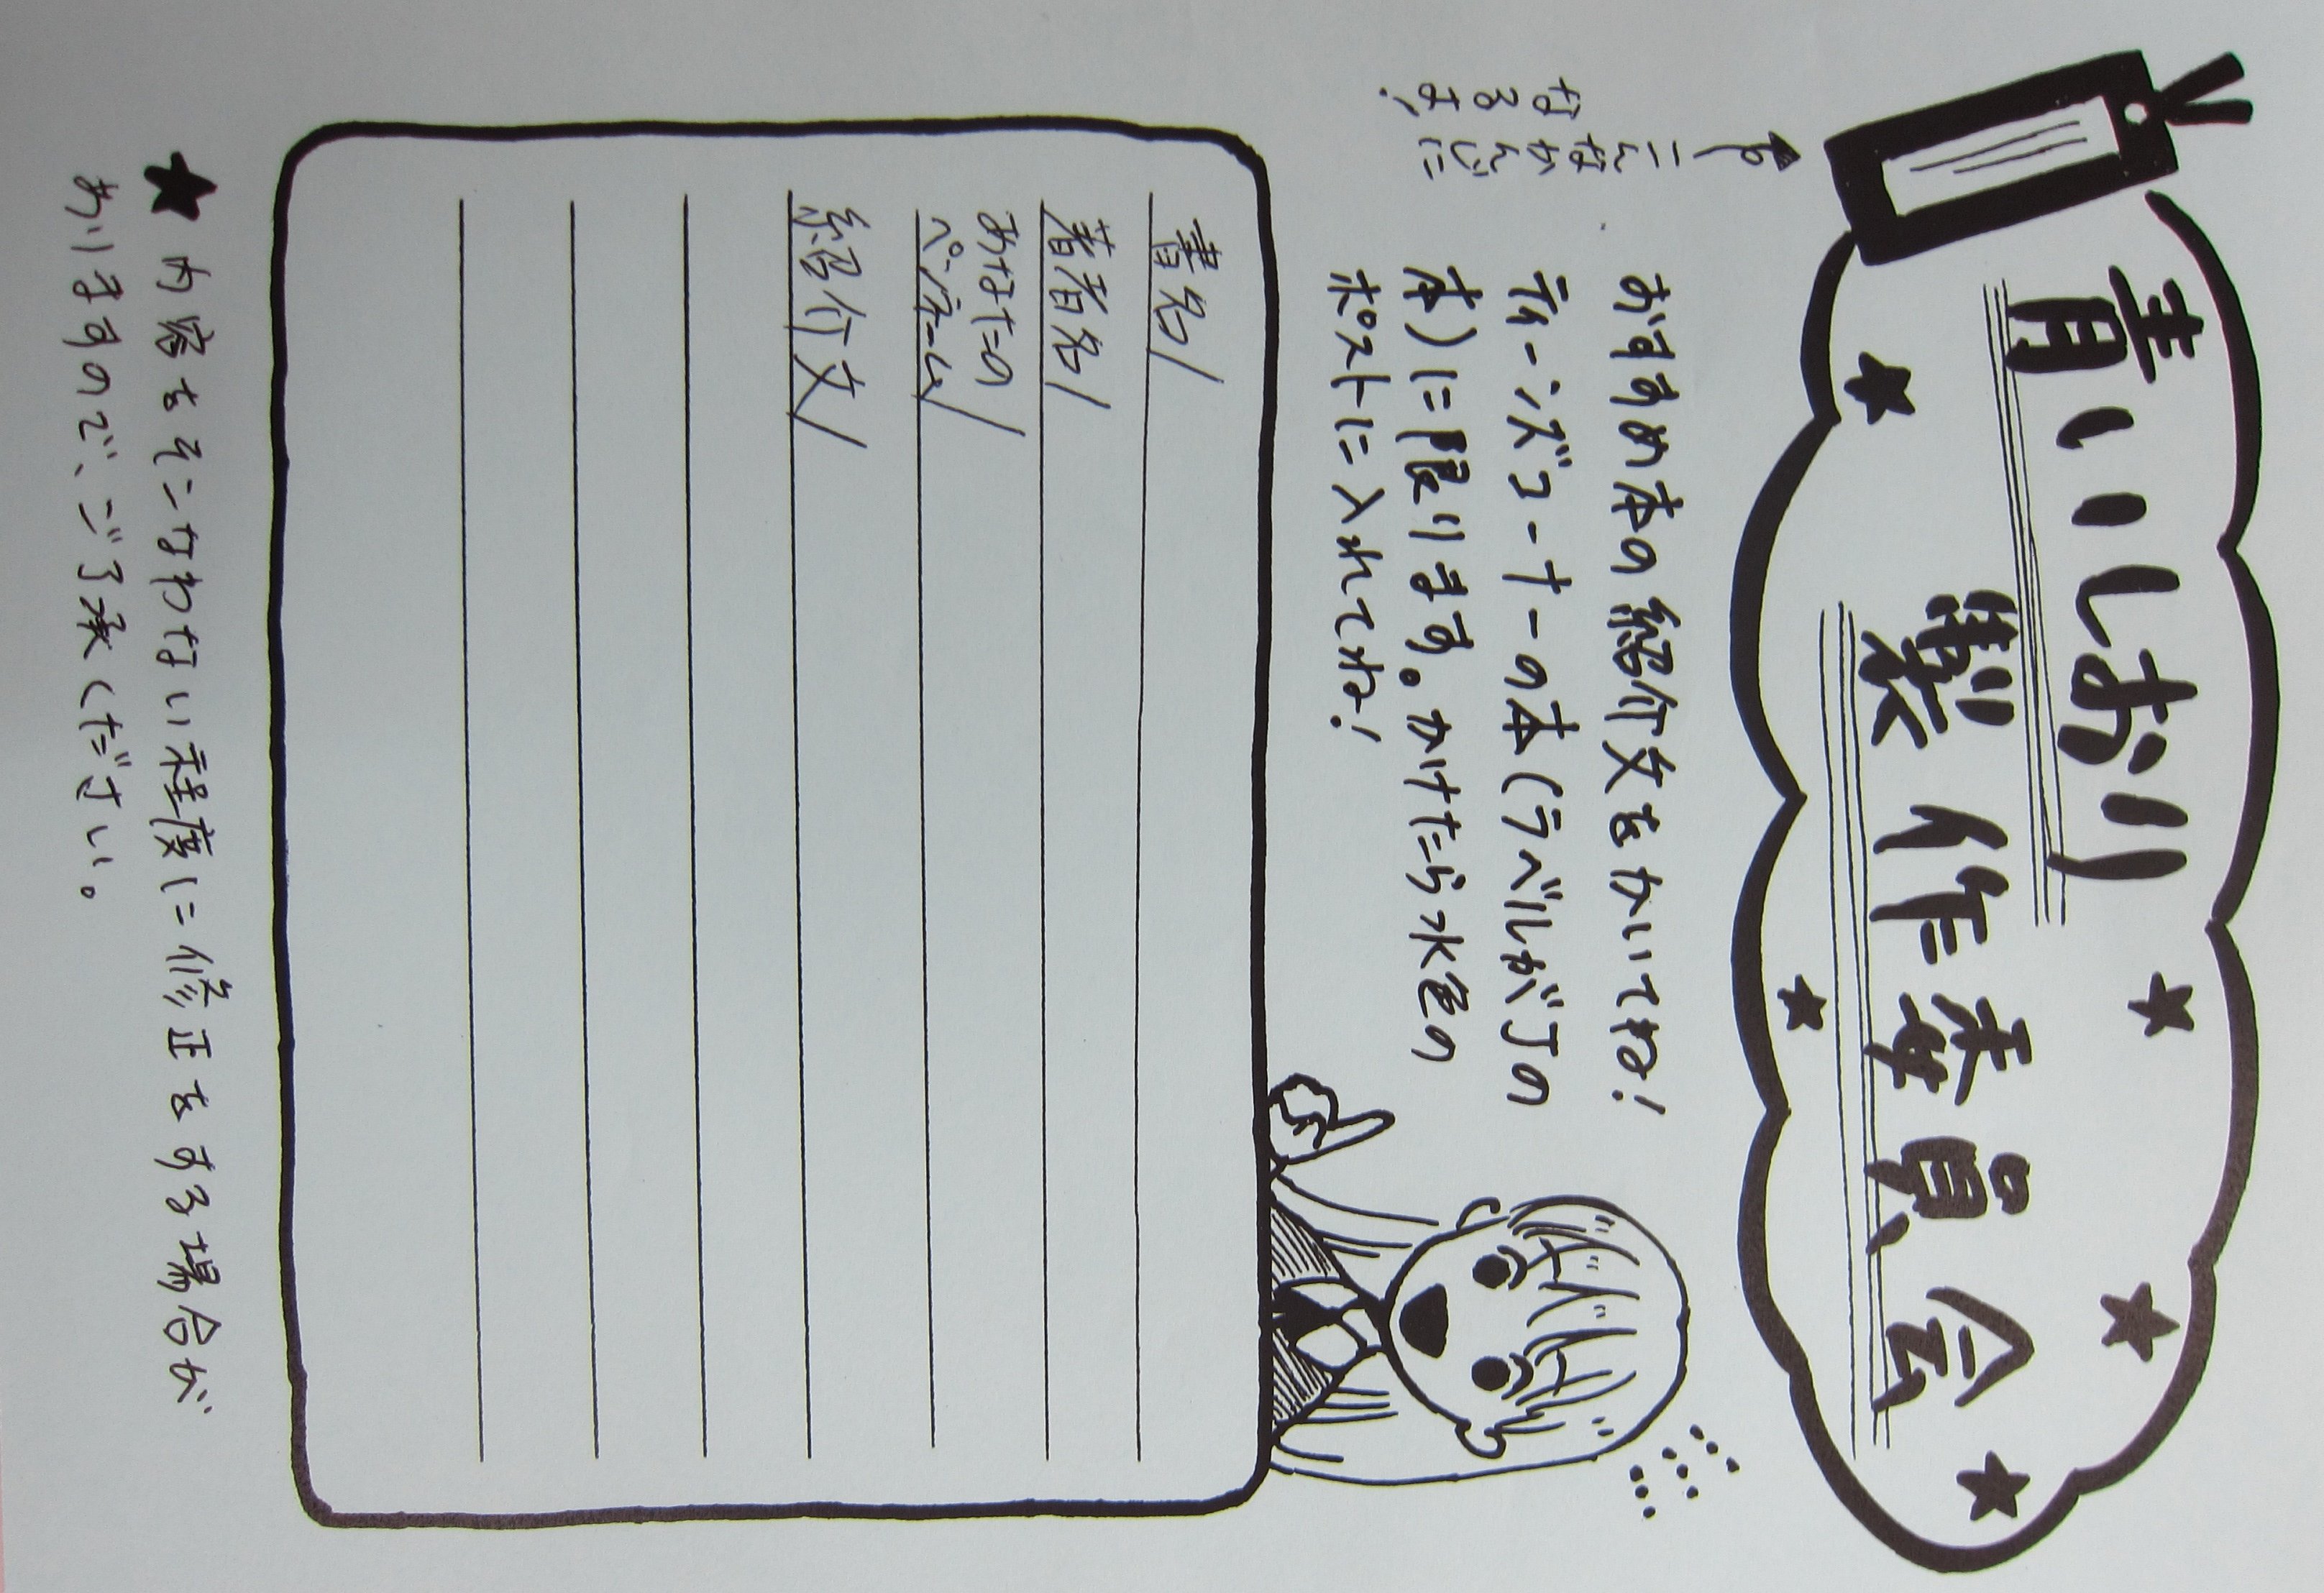 青いしおり
製作委員会
こんなかんじに
なるよ!
おすすめ本の紹介文をかいてね!
ティーンズコーナーの本(ラベルがJの
本)に限ります。かけたら水色の
ポストに入れてね!
書名/
著者名/
あなたの
ペンネーム/
紹介文/
★内容をそこなわない程度に修正をする場合が
ありますので、ご了承ください。